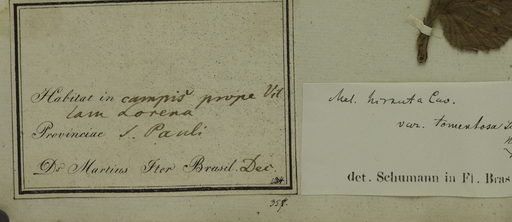 Habitat in campis prope Vil
lam Lorena
Provinciae S. Pauli
Dr Martius Iter Brasil. Dec
357.
Mel. hirsuta Cav.
var. tomentosa
det. Schumann in Fl. Bras